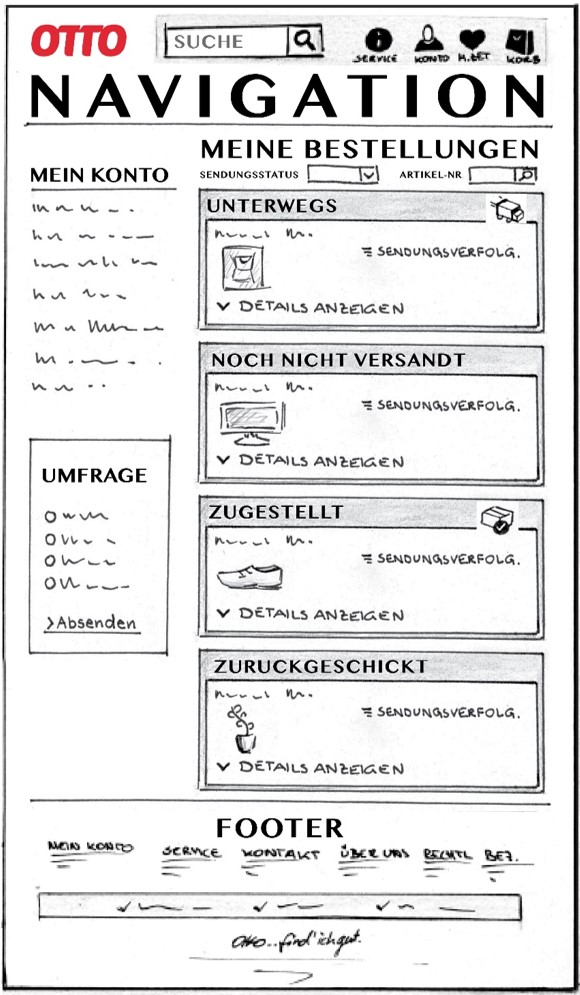 OTTO
SUCHE
SERVICE KONTO M.ZET KORB
NAVIGATION
MEINE BESTELLUNGEN
SENDUNGSSTATUS ARTIKEL-NR
MEIN KONTO
UNTERWEGS
SENDUNGSVERFOLG.
DETAILS ANZEIGEN
NOCH NICHT VERSANDT
SENDUNGSVERFOLG.
DETAILS ANZEIGEN
UMFRAGE
>Absenden
ZUGESTELLT
SENDUNGSVERFOLG.
DETAILS ANZEIGEN
ZURUCKGESCHICKT
SENDUNGSVERFOLG.
DETAILS ANZEIGEN
FOOTER
MEIN KONTO SERVICE KONTAKT ÜBER UNS RECHTL BEZ.
Otto...find' ich gut.